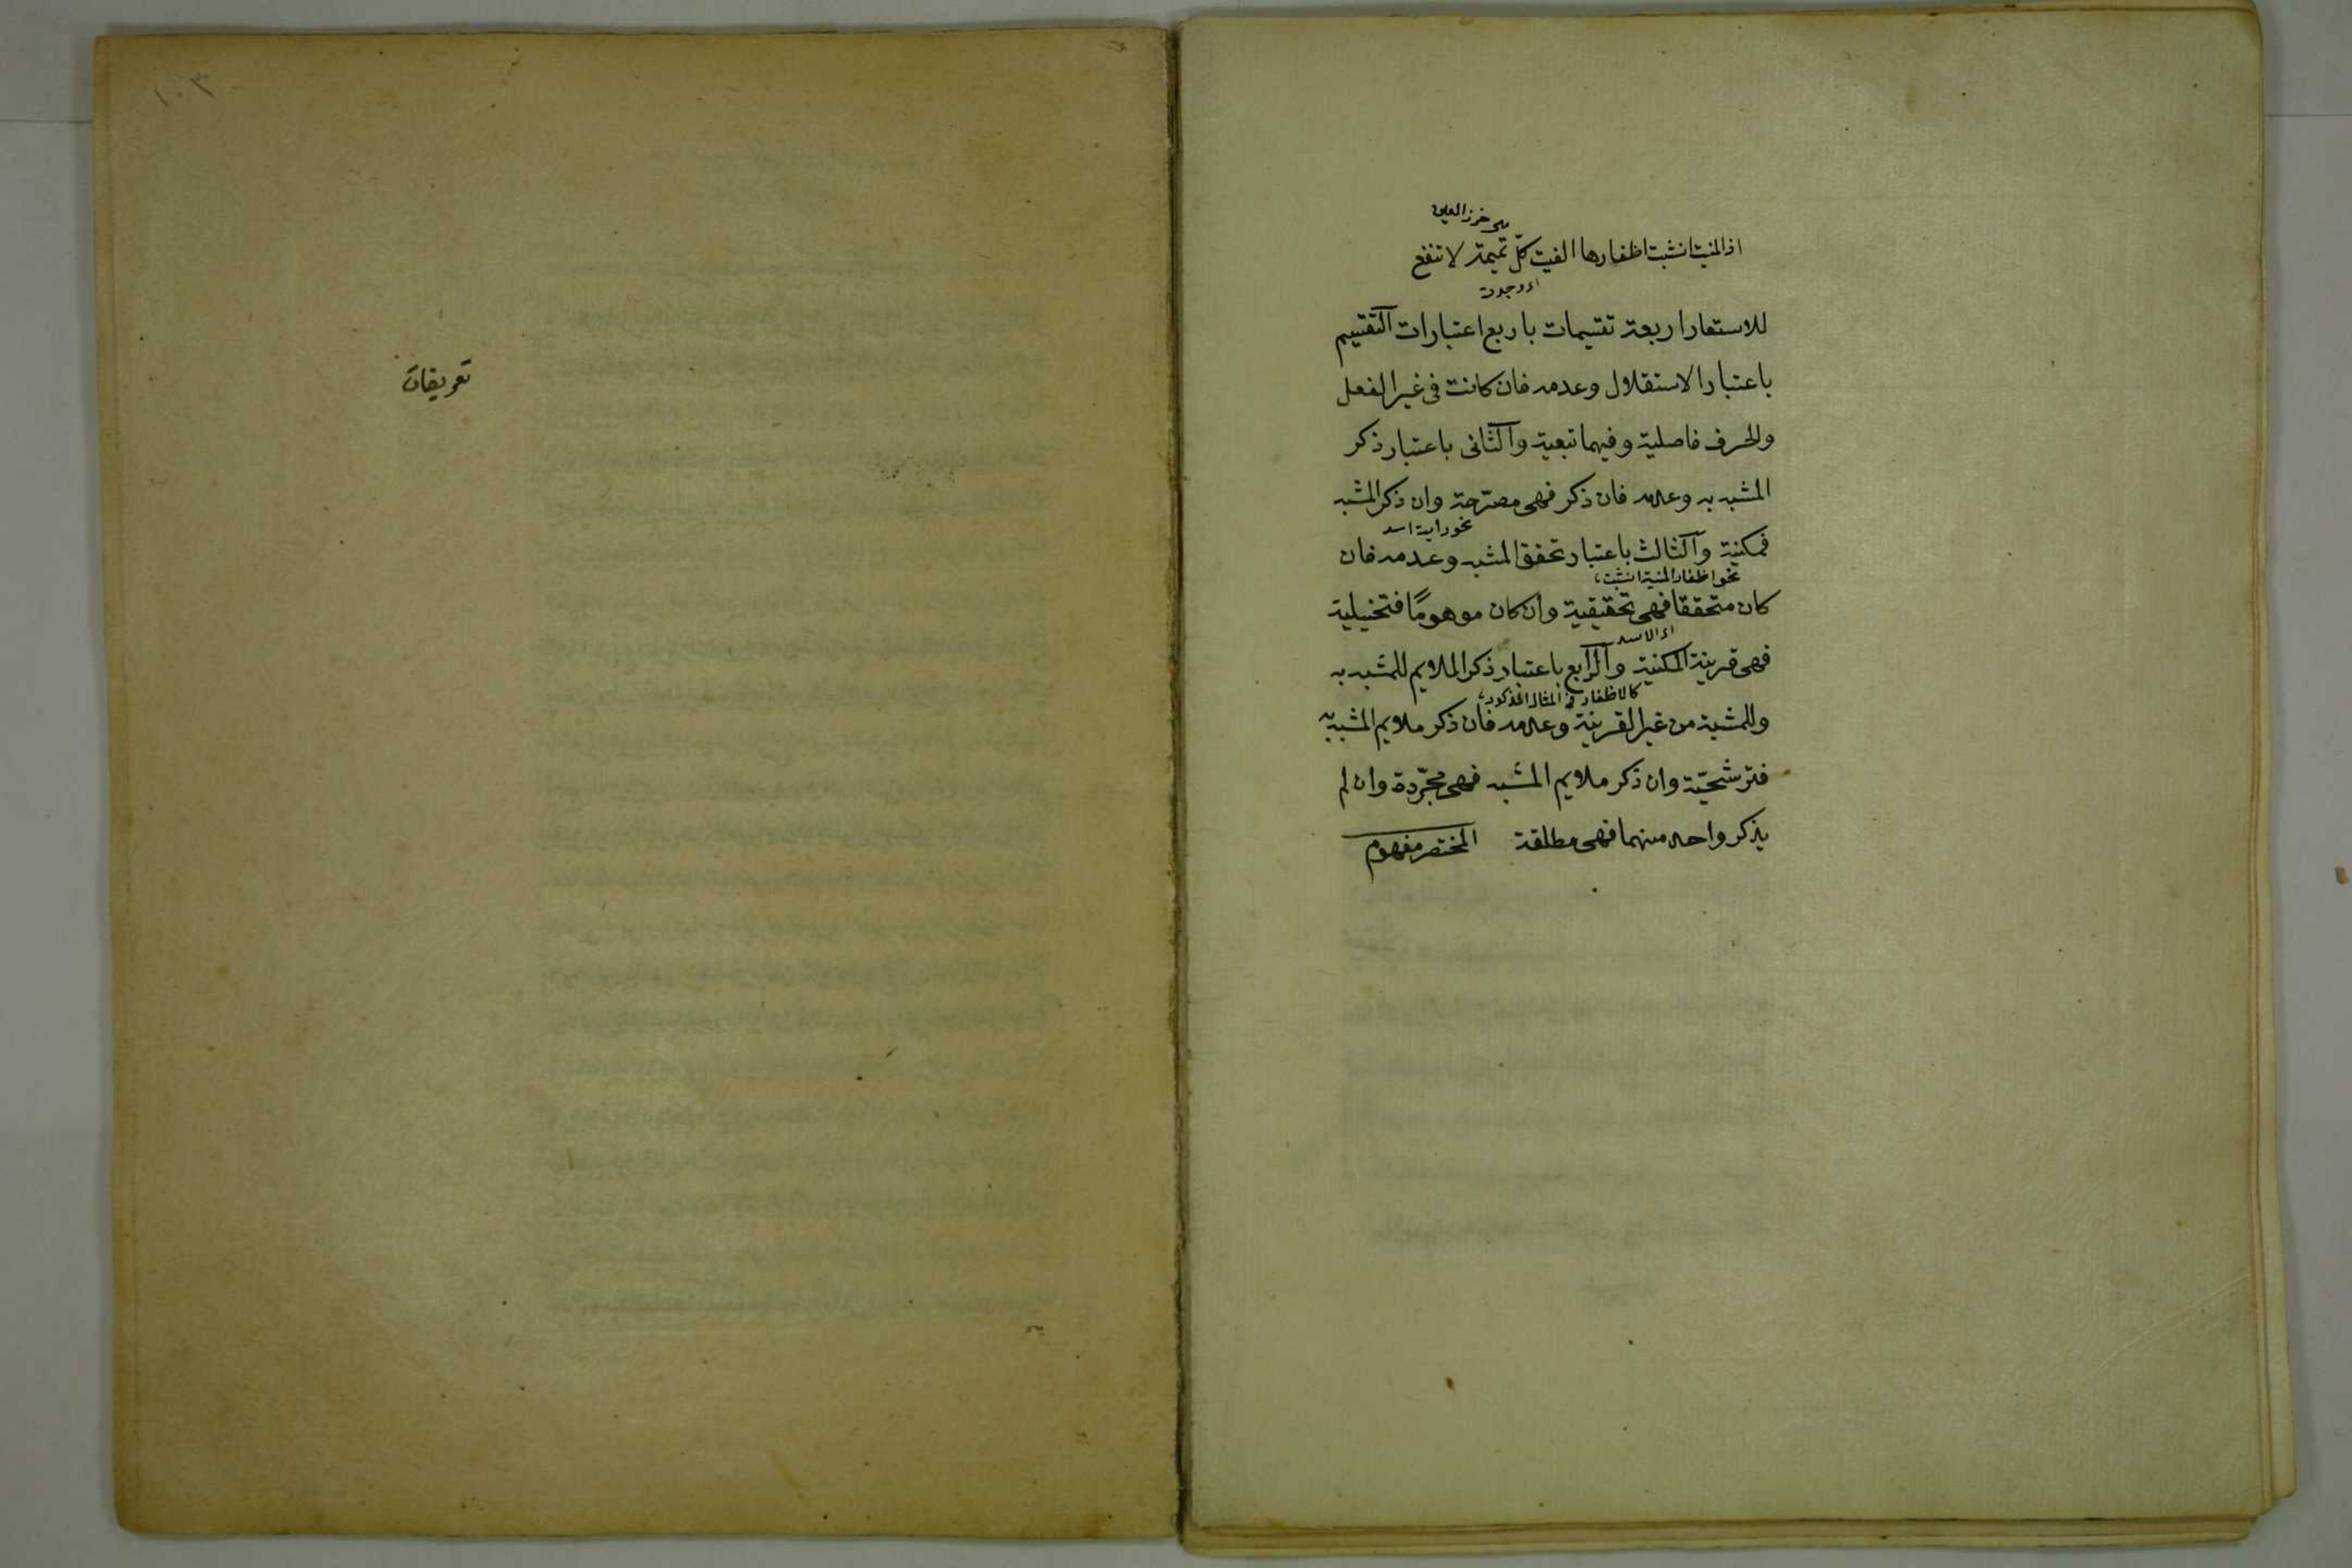 هى خرز العين
اذ المنية انشبت اظفارها الفيت كلّ تميمة لا تنفع
اى وجدت
للاستعار اربعة تقسيمات باربع اعتبارات آلتقسيم
باعتبار الاستقلال وعدمه فان كانت فى غير الفعل
والحرف فاصلية وفيهما تبعية وآلثانى باعتبار ذكر
المشبه به وعدمه فان ذكر فهى مصرّحة وان ذكر المشبه
نحو رايت اسد
فمكنية وآلثالث باعتبار تحقق المشبه وعدمه فان
نحو اظفار المنية انشبت
كان متحققا فهى تحقيقية وان كان موهومًا فتخييلية
اى الاسد
فهى قرينة المكنية وآلرابع باعتبار ذكر الملايم للمشبه به
كالاظفار فى المثال المذكور
وللمشبه من غير القرينة وعدمه فان ذكر ملايم المشبه به
فترشحيّة وان ذكر ملايم المشبه فهى مجرّدة وان لم
يذكر واحد منهما فهى مطلقة المختصر مفهوم
١٠٣
تعريفات